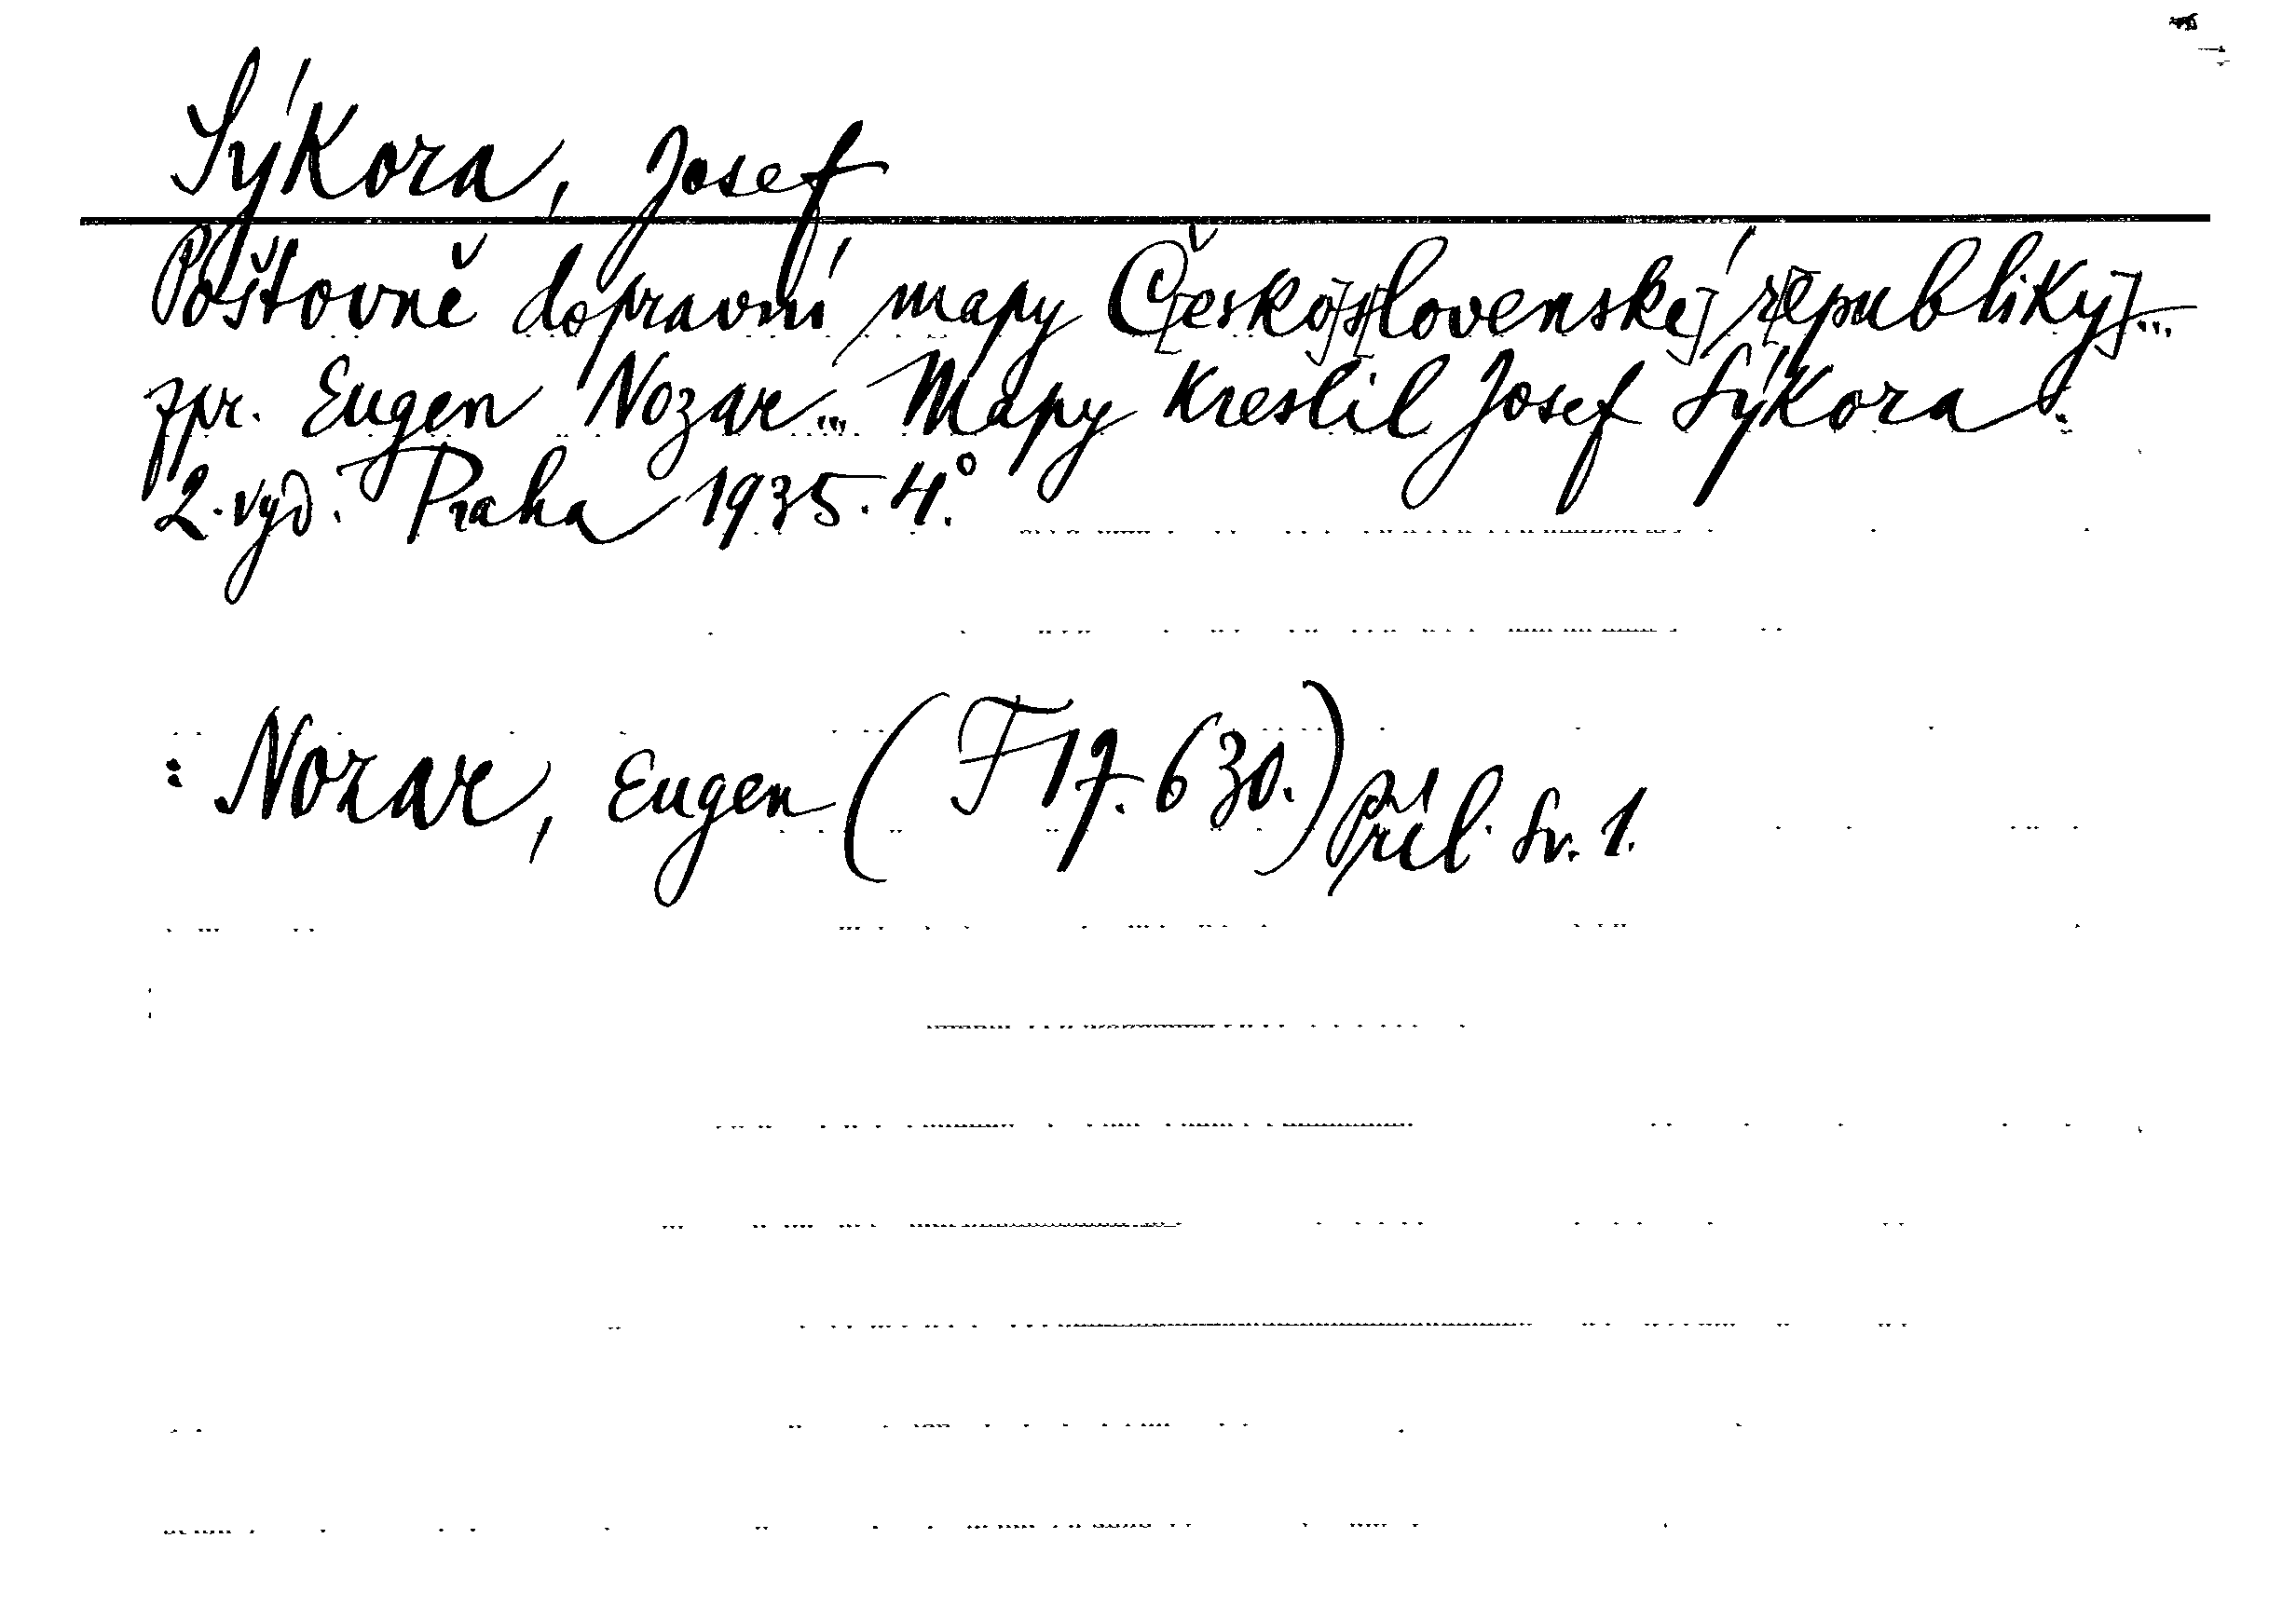 Sýkora, Josef
Poštovně dopravní mapy Č[esko]s[lovenské] r[epubliky]...
zpr. Eugen Nozar... Mapy kreslil Josef Sýkora.
2. vyd. Praha 1935. 4°.
: Nozar, Eugen (F 17.630.) příl. sv. 1.